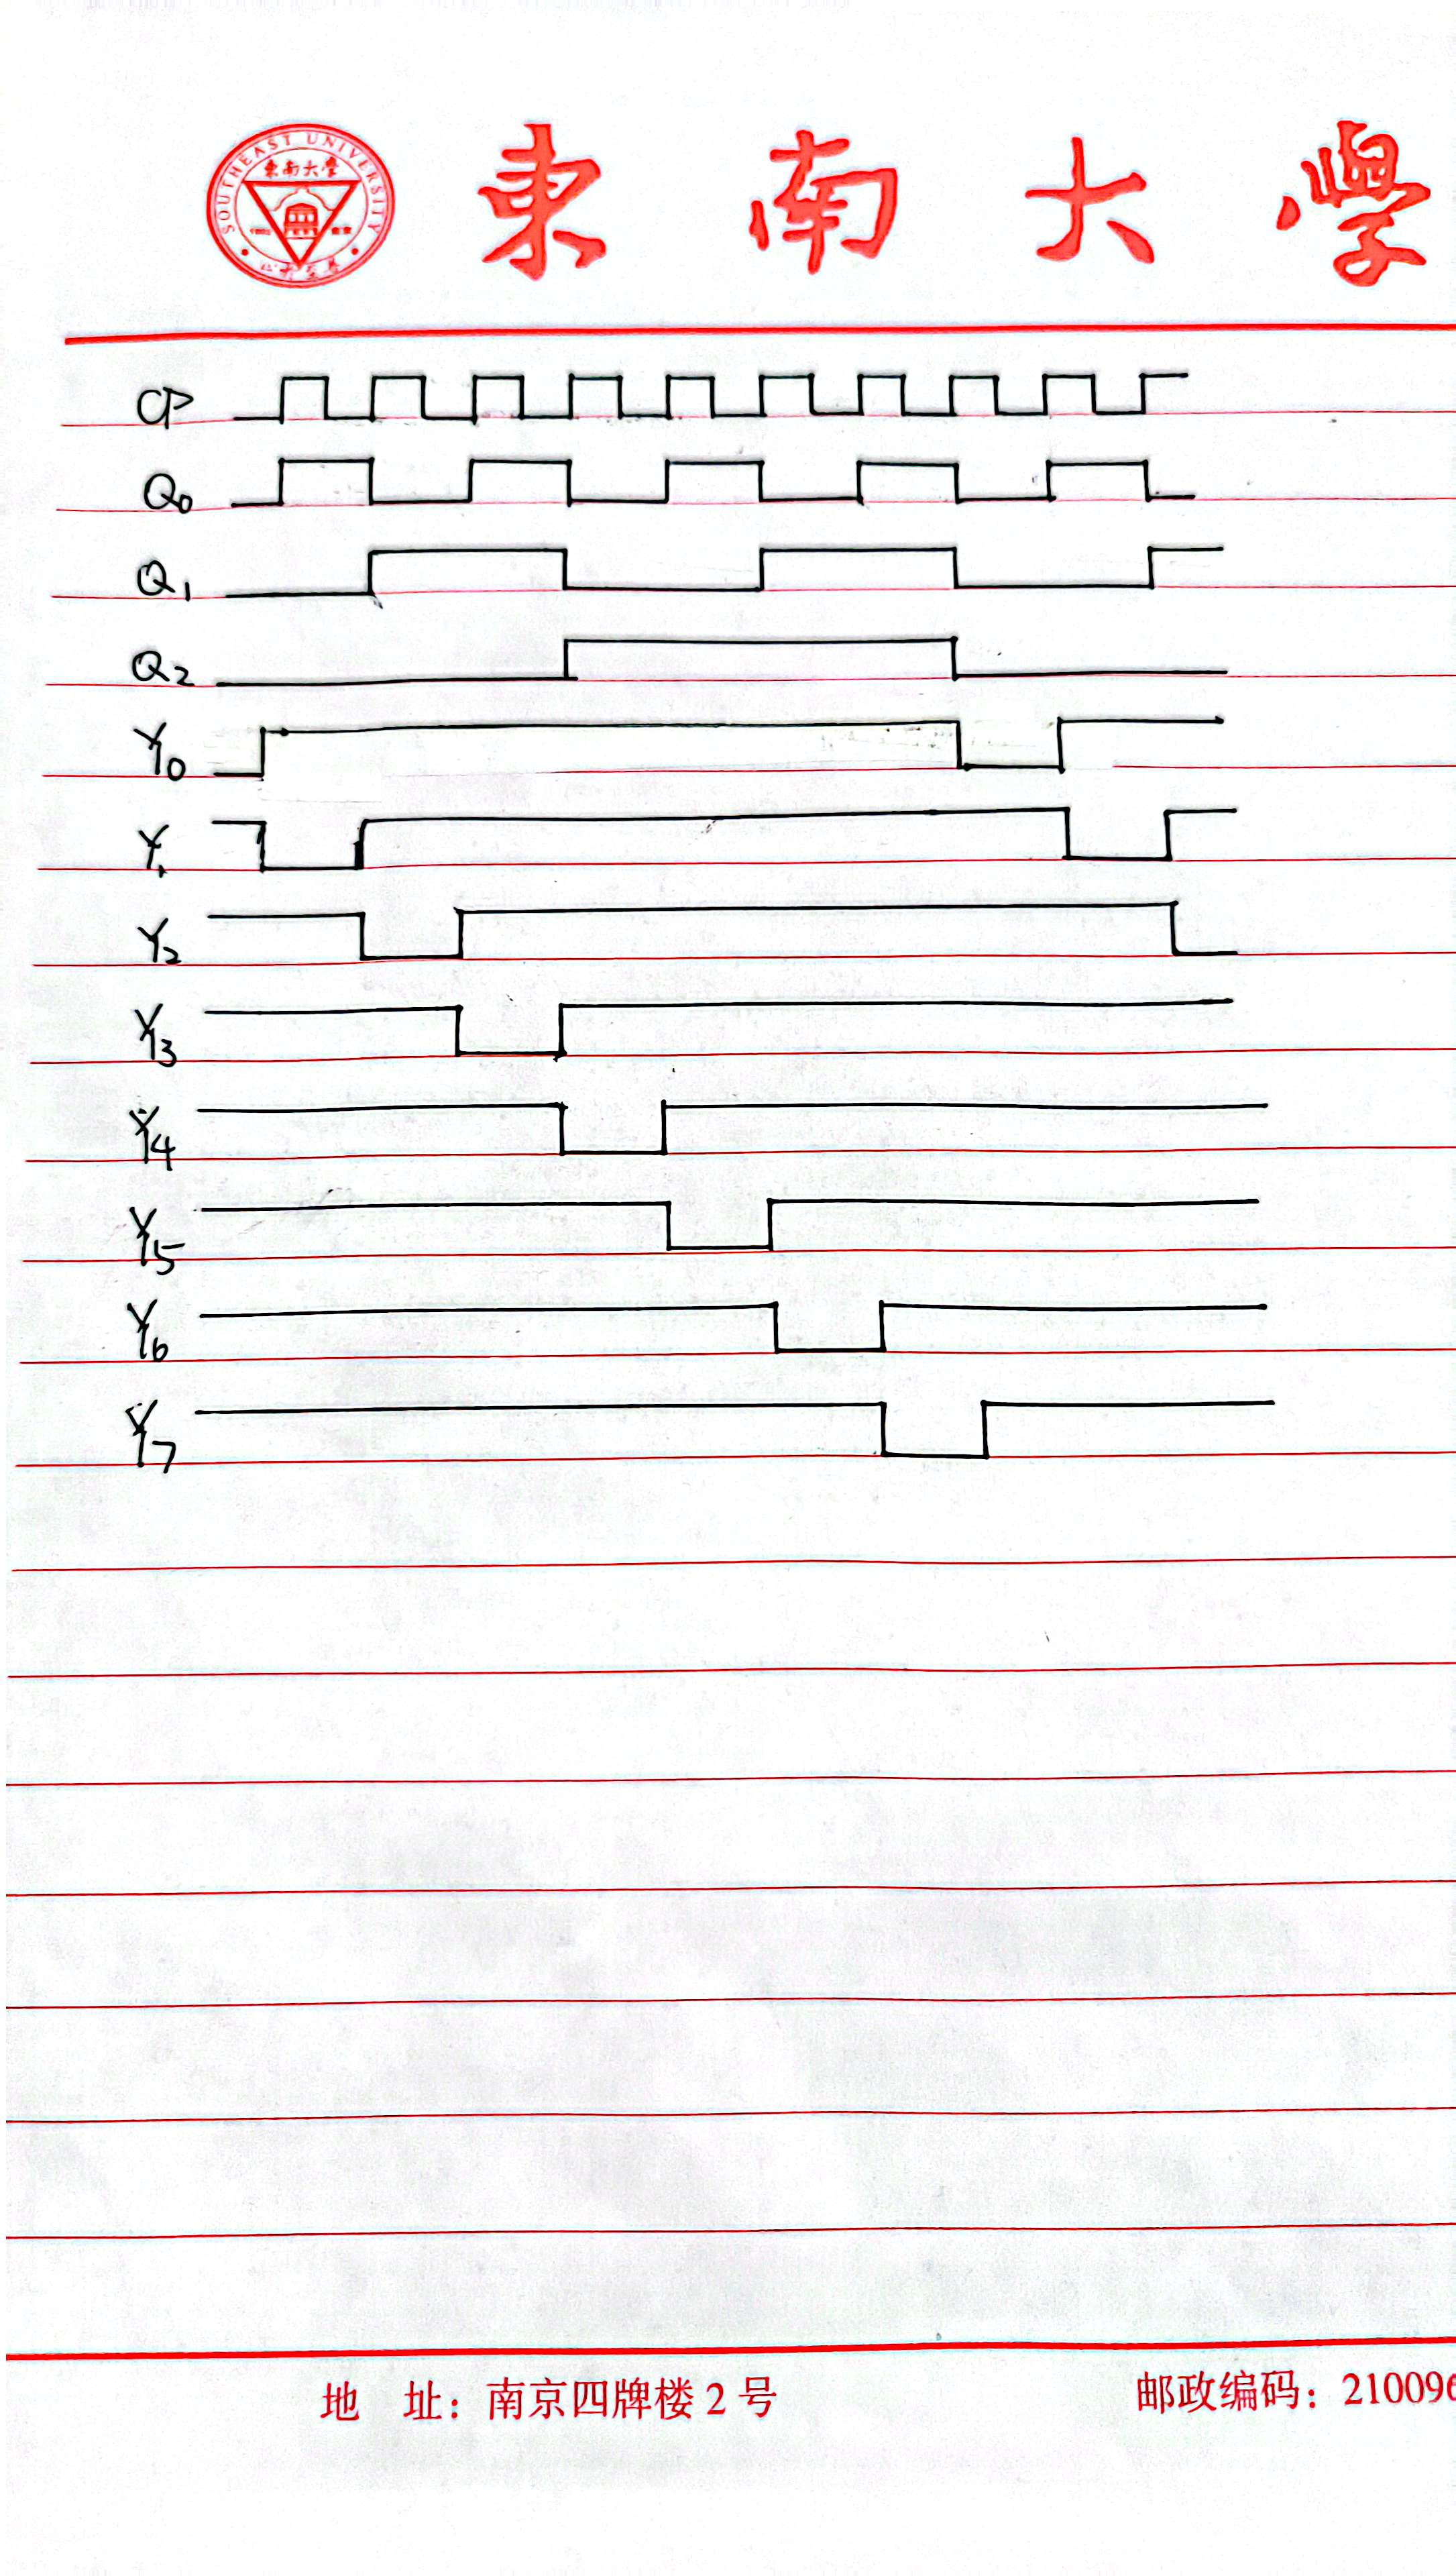 SOUTHEAST UNIVERSITY
東南大學
1902 南京
東南大學
CP
Q0
Q1
Q2
Y0
Y1
Y2
Y3
Y4
Y5
Y6
Y7
地 址：南京四牌楼 2 号 邮政编码：210096